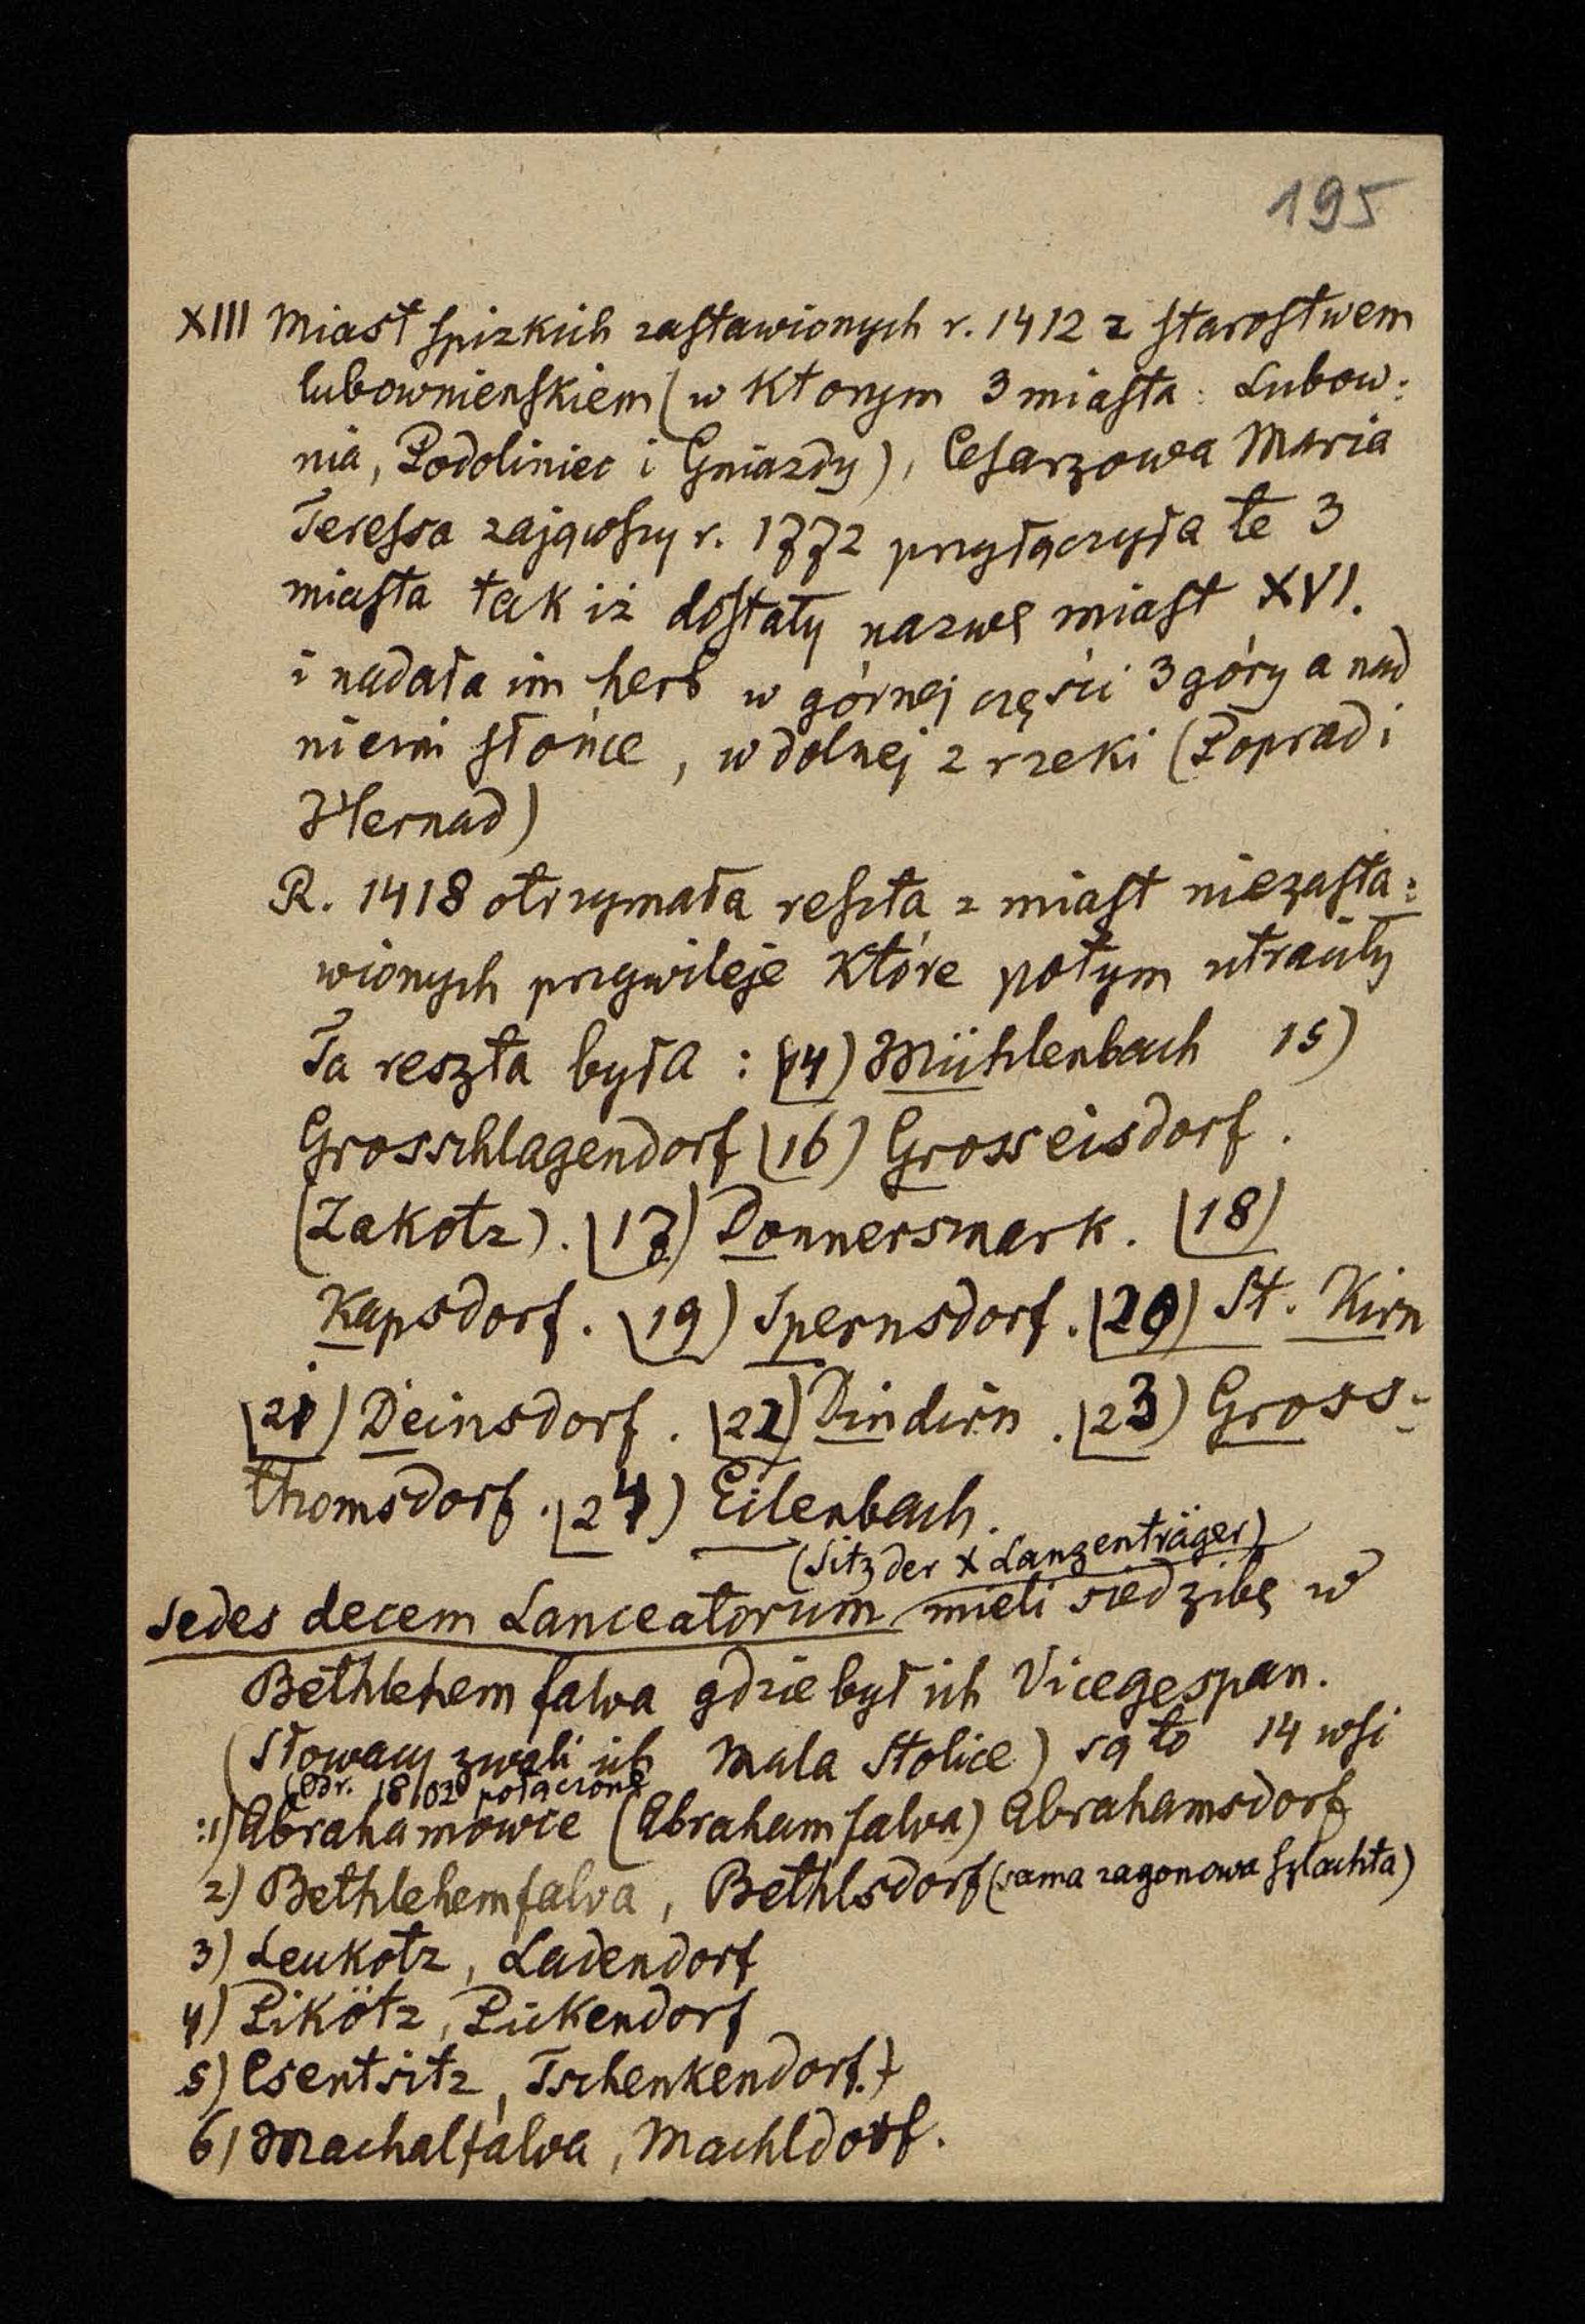 195
XIII Miast spizkich zastawionych r. 1412 z starostwem
lubownienskiem (w ktorym 3 miasta: Lubow:
nia, Podoliniec i Gniazdy), Cesarzowa Maria
Teressa zająwszy r. 1772 przyłączyła te 3
miasta tak iż dostały nazwę miast XVI.
i nadała im herb w górnej części 3 góry a nad
niemi słońce, w dolnej 2 rzeki (Poprad i
Hernad)
R. 1418 otrzymała reszta z miast niezasta:
wionych przywileje które potym utraciły
Ta reszta była : (14) Mühlenbach 15)
Grosschlagendorf (16) Grosseisdorf.
(Zakotz). (17) Donnersmark. (18)
Kapsdorf. (19) Spernsdorf. (20) St. Kirn
(21) Deinsdorf. (22) Dindirn. (23) Gross:
thomsdorf. (24) Eilenbach.
(Sitz der X Lanzenträger)
Sedes decem Lanceatorum mieli siedzibę w
Bethlehemfalva gdzie był ich Vicegespan.
(Słowacy zwali ich Mala Stolice) są to 14 wsi
(od r. 1802 połączone
1) Abrahamowce (Abrahamfalva) Abrahamsdorf
2) Bethlehemfalva, Bethlsdorf (sama zagonowa szlachta)
3) Leukotz, Ladendorf
4) Pikötz, Pickendorf
5) Csentsitz, Tschenkendorf.)
6) Machalfalva, Machldorf.